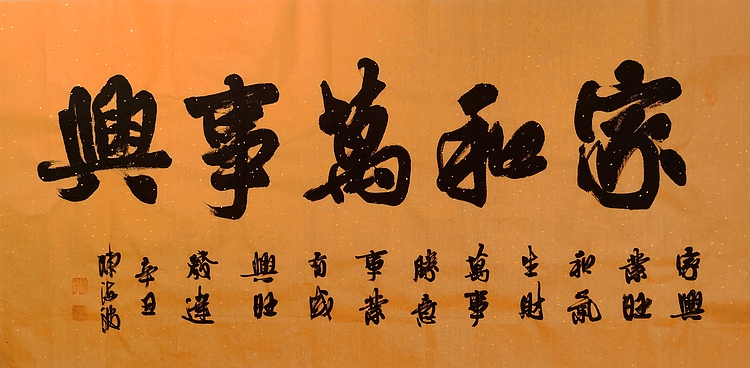 家和萬事興
家興
業旺
和氣
生財
萬事
勝意
事業
有成
興旺
發達
辛丑
陳海